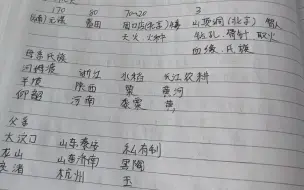 170 80 70~20 3
元谋 蓝田 周口店(北京)猿 山顶洞(北京)智人
火 火种 钻孔 骨针 取火
血缘 氏族
母系氏族
河姆渡 浙江 水稻 长江农耕
半坡 陕西 粟 黄河
仰韶 河南 粟 黄
父系
大汶口 山东泰安 私有制
龙山 山东济南 黑陶
良渚 杭州 玉